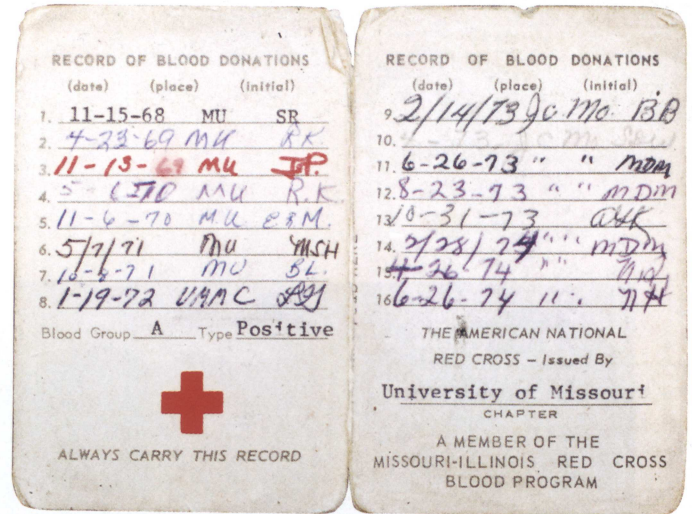 RECORD OF BLOOD DONATIONS
(date) (place) (initial)
1. 11-15-68 MU SR
2. 4-23-69 MU RK
3. 11-13-69 MU J.P.
4. 5- 70 MU R.K.
5. 11-6-70 MU
6. 5/7/71 MU MSH
7. 71 MU BL.
8. 1-19-72
Blood Group A Type Positive
ALWAYS CARRY THIS RECORD
RECORD OF BLOOD DONATIONS
(date) (place) (initial)
9. 2/14/73 Jc Mo. BB
10. 73 Jc Mo
11. 6-26-73 " " MDM
12. 8-23-73 " " MDM
13. 10-31-73
14. 2/28/74 " " MDM
15. 4-26-74 " "
16. 6-26-74 " "
THE AMERICAN NATIONAL
RED CROSS – Issued By
University of Missouri
CHAPTER
A MEMBER OF THE
MISSOURI-ILLINOIS RED CROSS
BLOOD PROGRAM